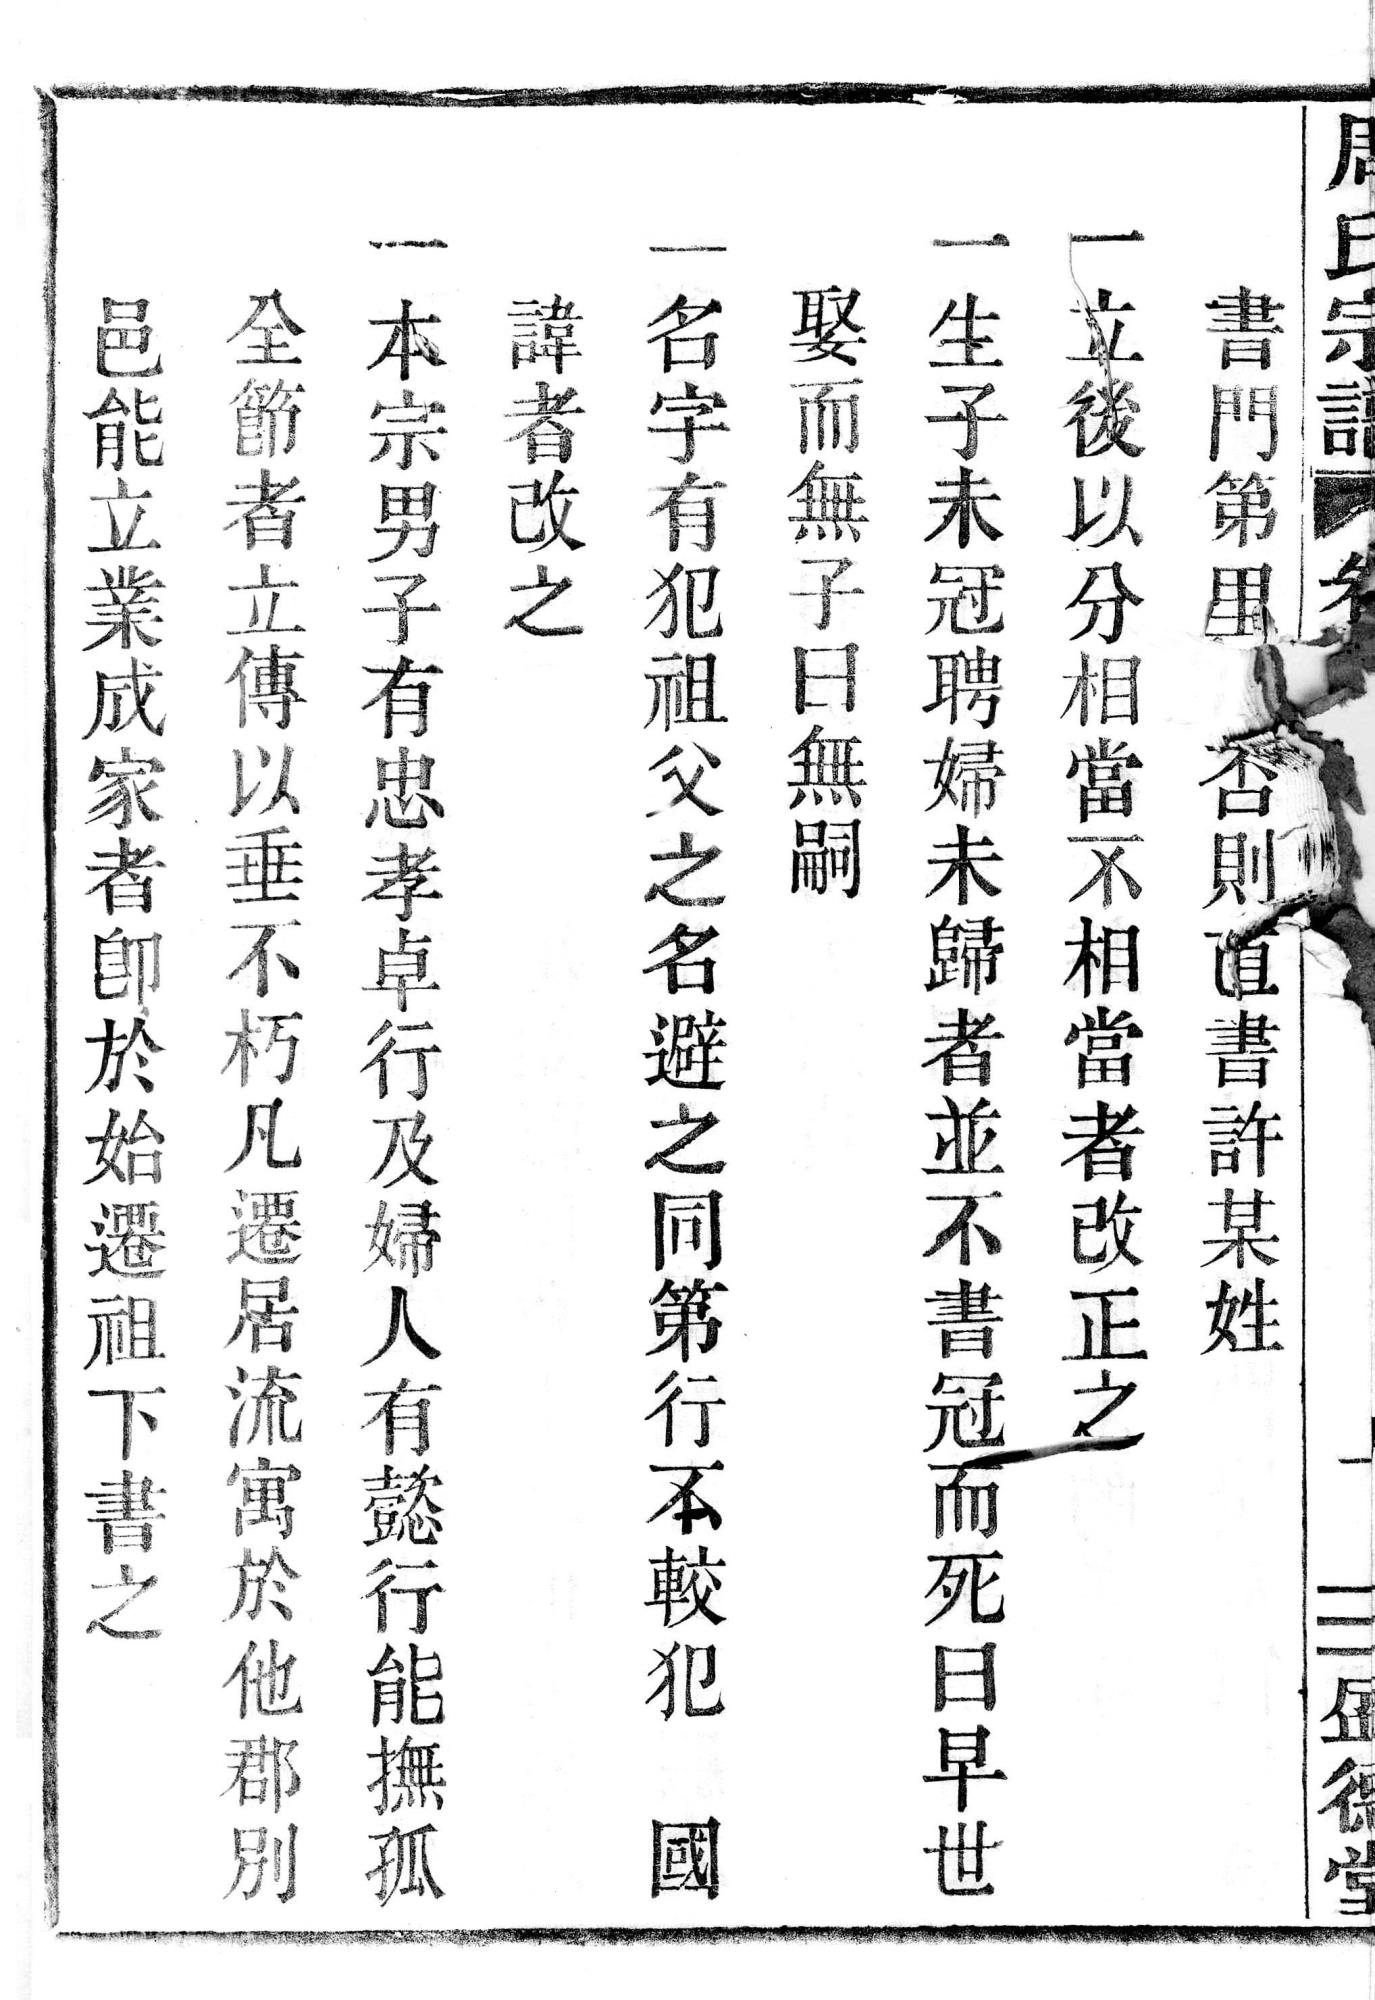 周氏宗譜 卷 三 盛德堂
書門第里否則直書許某姓
一立後以分相當不相當者改正之
一生子未冠聘婦未歸者並不書冠而死曰早世
娶而無子曰無嗣
一名字有犯祖父之名避之同第行不較犯　國
諱者改之
一本宗男子有忠孝卓行及婦人有懿行能撫孤
全節者立傳以垂不朽凡遷居流寓於他郡別
邑能立業成家者卽於始遷祖下書之